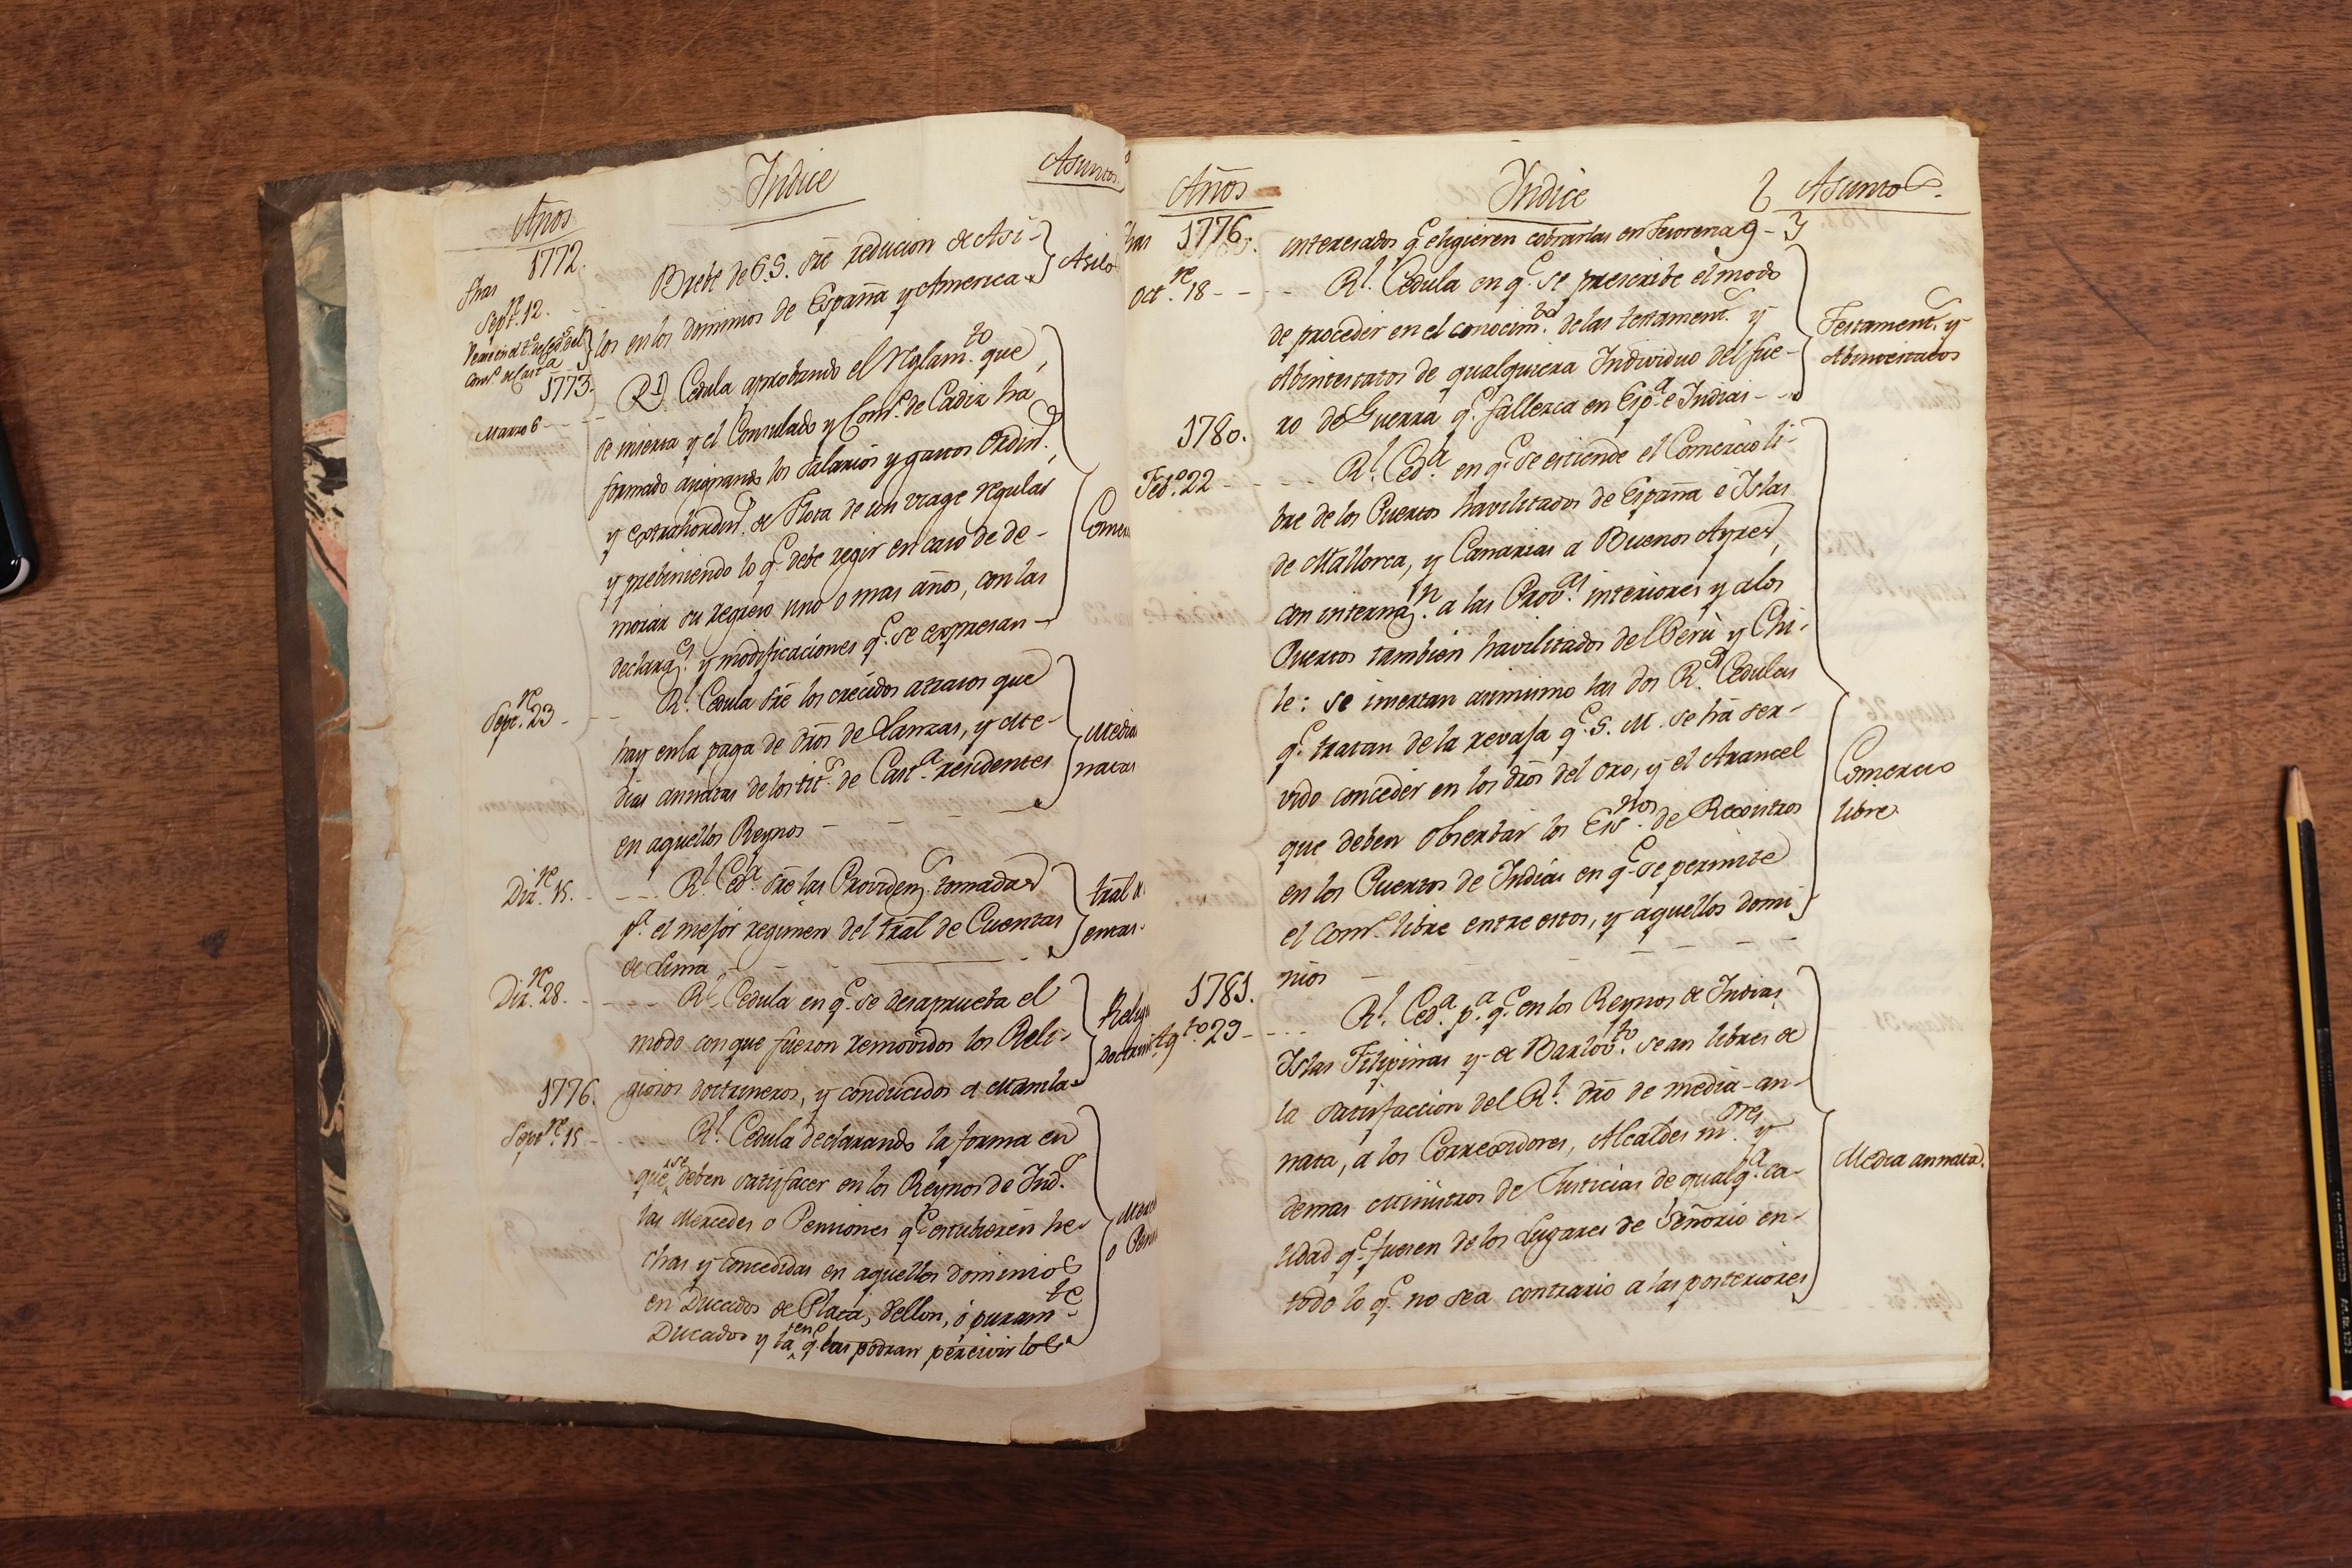 Años
Indice
Asuntos
1772.
fhas
Sept.re 12.
Brebe de S.S. sre reducion de Asi-
los en los dominios de España y America
Asilo
1773.
Marzo 6
Rl. Cedula aprobando el Reglam.to que
se inserta y el Consulado y Com.o de Cadiz ha
formado asignando los Salarios y gastos Ordin.s
y extrahordin.s de Flota de un viage regular
y prebiniendo lo q.e debe regir en caso de de-
morar su regreso uno o mas años, con las
declaraz.s y modificaciones q.e se expresan
Comer
Sept.re 23
Rl. Cedula sre los crecidos atrasos que
hay en la paga de dros de Lanzas, y Me-
dias annatas de los tit.s de Cast.a residentes
en aquellos Reynos
Media
natas
Diz.re 15.
Rl. Ced.a sre las Providenz.s tomadas
p.a el mejor regimen del tral de Cuentas
de Lima
tral
entas
Diz.re 28.
Rl. Cedula en q.e se desaprueba el
modo con que fueron removidos los Reli-
giosos doctrineros, y conducidos a Manila
Relig
Doctrin
1776.
Sept.re 15
Rl. Cedula declarando la forma en
que se deben satisfacer en los Reynos de Ind.s
las Mercedes o Pensiones q.e estubieren he-
chas y concedidas en aquellos dominios
en Ducados de Plata, Vellon, ó puram.te
Ducados y la en q.e las podran percivir los
Merc
o Pen
Años
Indice
2
Asuntos.
fhas 1776.
interesados q.e eligieren cobrarlas en Tesoreria
Oct.re 18
Rl. Cedula en q.e se prescribe el modo
de proceder en el conocim.to de las testament.s y
Abintestatos de qualquiera Individuo del fue-
ro de Guerra q.e fallezca en Esp.a e Indias
Testament.s y
Abintestatos
1780.
Feb.o 22
Rl. Ced.a en q.e se estiende el Comercio li-
bre de los Puertos havilitados de España é Islas
de Mallorca, y Canarias a Buenos Ayres,
con internaz.n a las Prov.as interiores y a los
Puertos tambien havilitados del Perú y Chi-
le: se insertan asimismo las dos R.s Cedulas
q.e tratan de la revaja q.e S. M. se há ser-
vido conceder en los dros del oro, y el Arancel
que deben observar los Esc.nos de Registros
en los Puertos de Indias en q.e se permite
el com.o libre entre estos, y aquellos domi
nios
Comercio
libre
1781.
Ag.to 29
Rl. Ced.a p.a q.e en los Reynos de Indias
Islas Filipinas y de Barlov.to sean libres de
la satisfaccion del Rl. dro de media-an-
nata, a los Corregidores, Alcaldes m.ores y
demas Ministros de Justicias de qualq.a ca-
lidad q.e fuesen de los Lugares de Señorio en
todo lo q.e no sea contrario a las posteriores
Media annata.